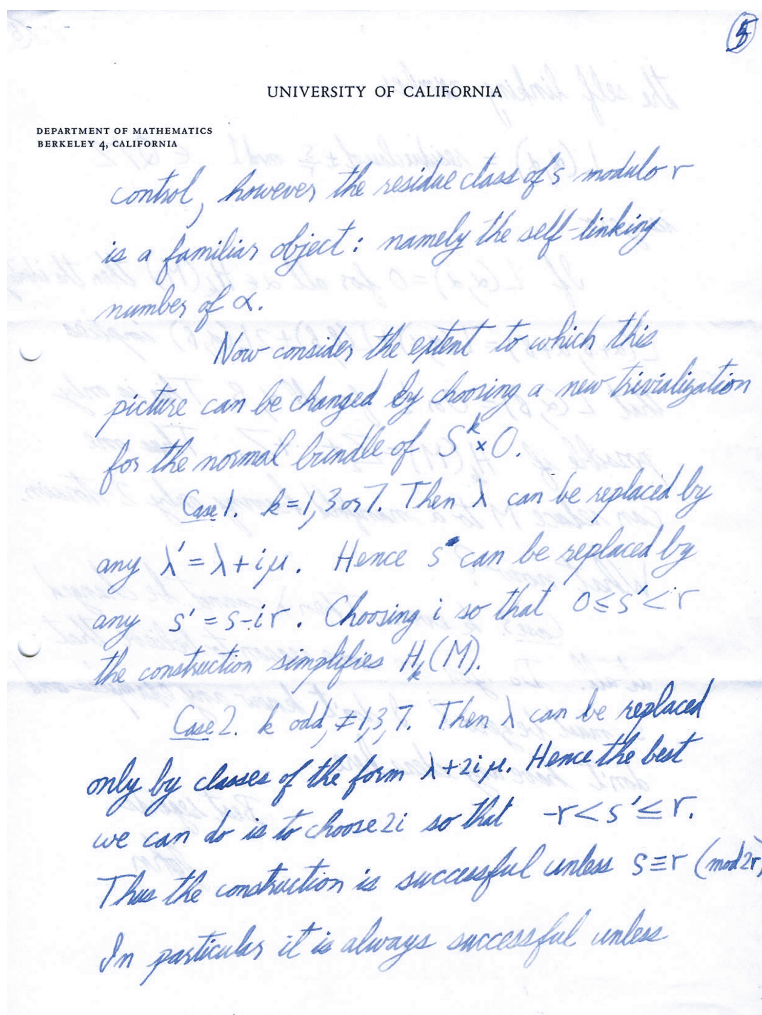 5
UNIVERSITY OF CALIFORNIA
DEPARTMENT OF MATHEMATICS
BERKELEY 4, CALIFORNIA
control, however the residue class of s modulo r
is a familiar object: namely the self-linking
number of α.
Now consider the extent to which this
picture can be changed by choosing a new trivialization
for the normal bundle of S^k × 0.
Case 1. k=1, 3 or 7. Then λ can be replaced by
any λ' = λ + iμ. Hence s can be replaced by
any s' = s-ir. Choosing i so that 0 ≤ s' < r
the construction simplifies H_k(M).
Case 2. k odd, ≠1,3,7. Then λ can be replaced
only by classes of the form λ+2iμ. Hence the best
we can do is to choose 2i so that -r < s' ≤ r.
Thus the construction is successful unless s≡r (mod 2r)
In particular it is always successful unless